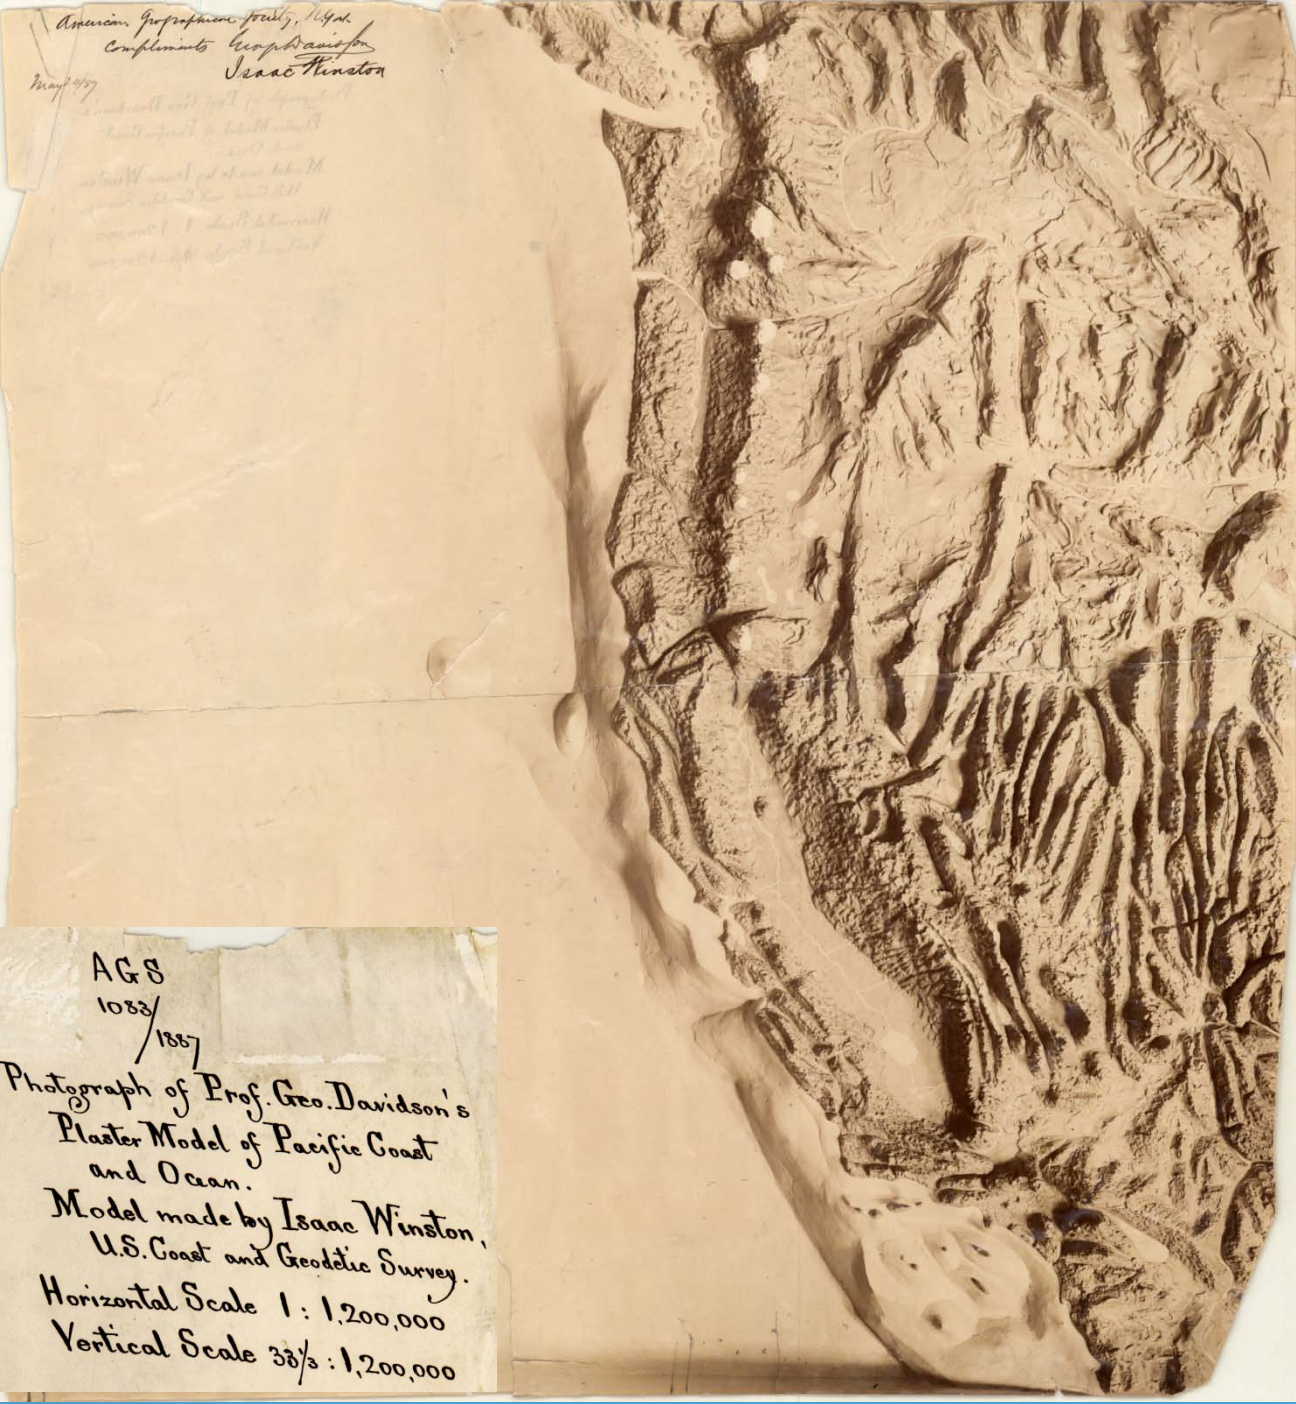 American Geographical Society, N. York
compliments George Davidson
Isaac Winston
May
AGS
1083/
1887
Photograph of Prof. Geo. Davidson's
Plaster Model of Pacific Coast
and Ocean.
Model made by Isaac Winston,
U.S. Coast and Geodetic Survey.
Horizontal Scale 1 : 1,200,000
Vertical Scale 33⅓ : 1,200,000